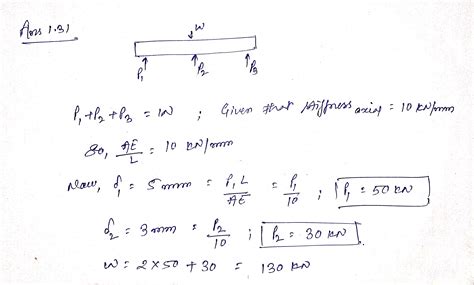 Ans 1.31
W
P₁ P₂ P₃
P₁+P₂+P₃ = W ; Given that stiffness axial = 10 kN/mm
So, AE/L = 10 kN/mm
Now, δ₁ = 5mm = P₁L/AE = P₁/10 ; P₁ = 50 kN
δ₂ = 3mm = P₂/10 ; P₂ = 30 kN
W = 2×50 + 30 = 130 kN